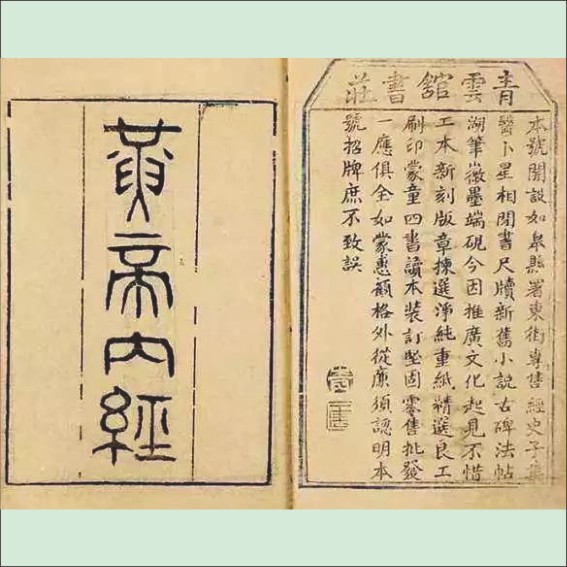 青雲館書莊
本號開設如皐縣署東街專售經史子集
醫卜星相閒書尺牘新舊小說古碑法帖
湖筆徽墨端硯今因推廣文化起見不惜
工本新刻版章揀選淨純重紙精選良工
刷印蒙童四書讀本裝訂堅固零售批發
一應俱全如蒙惠顧格外從廉須認明本
號招牌庶不致誤
黃帝內經